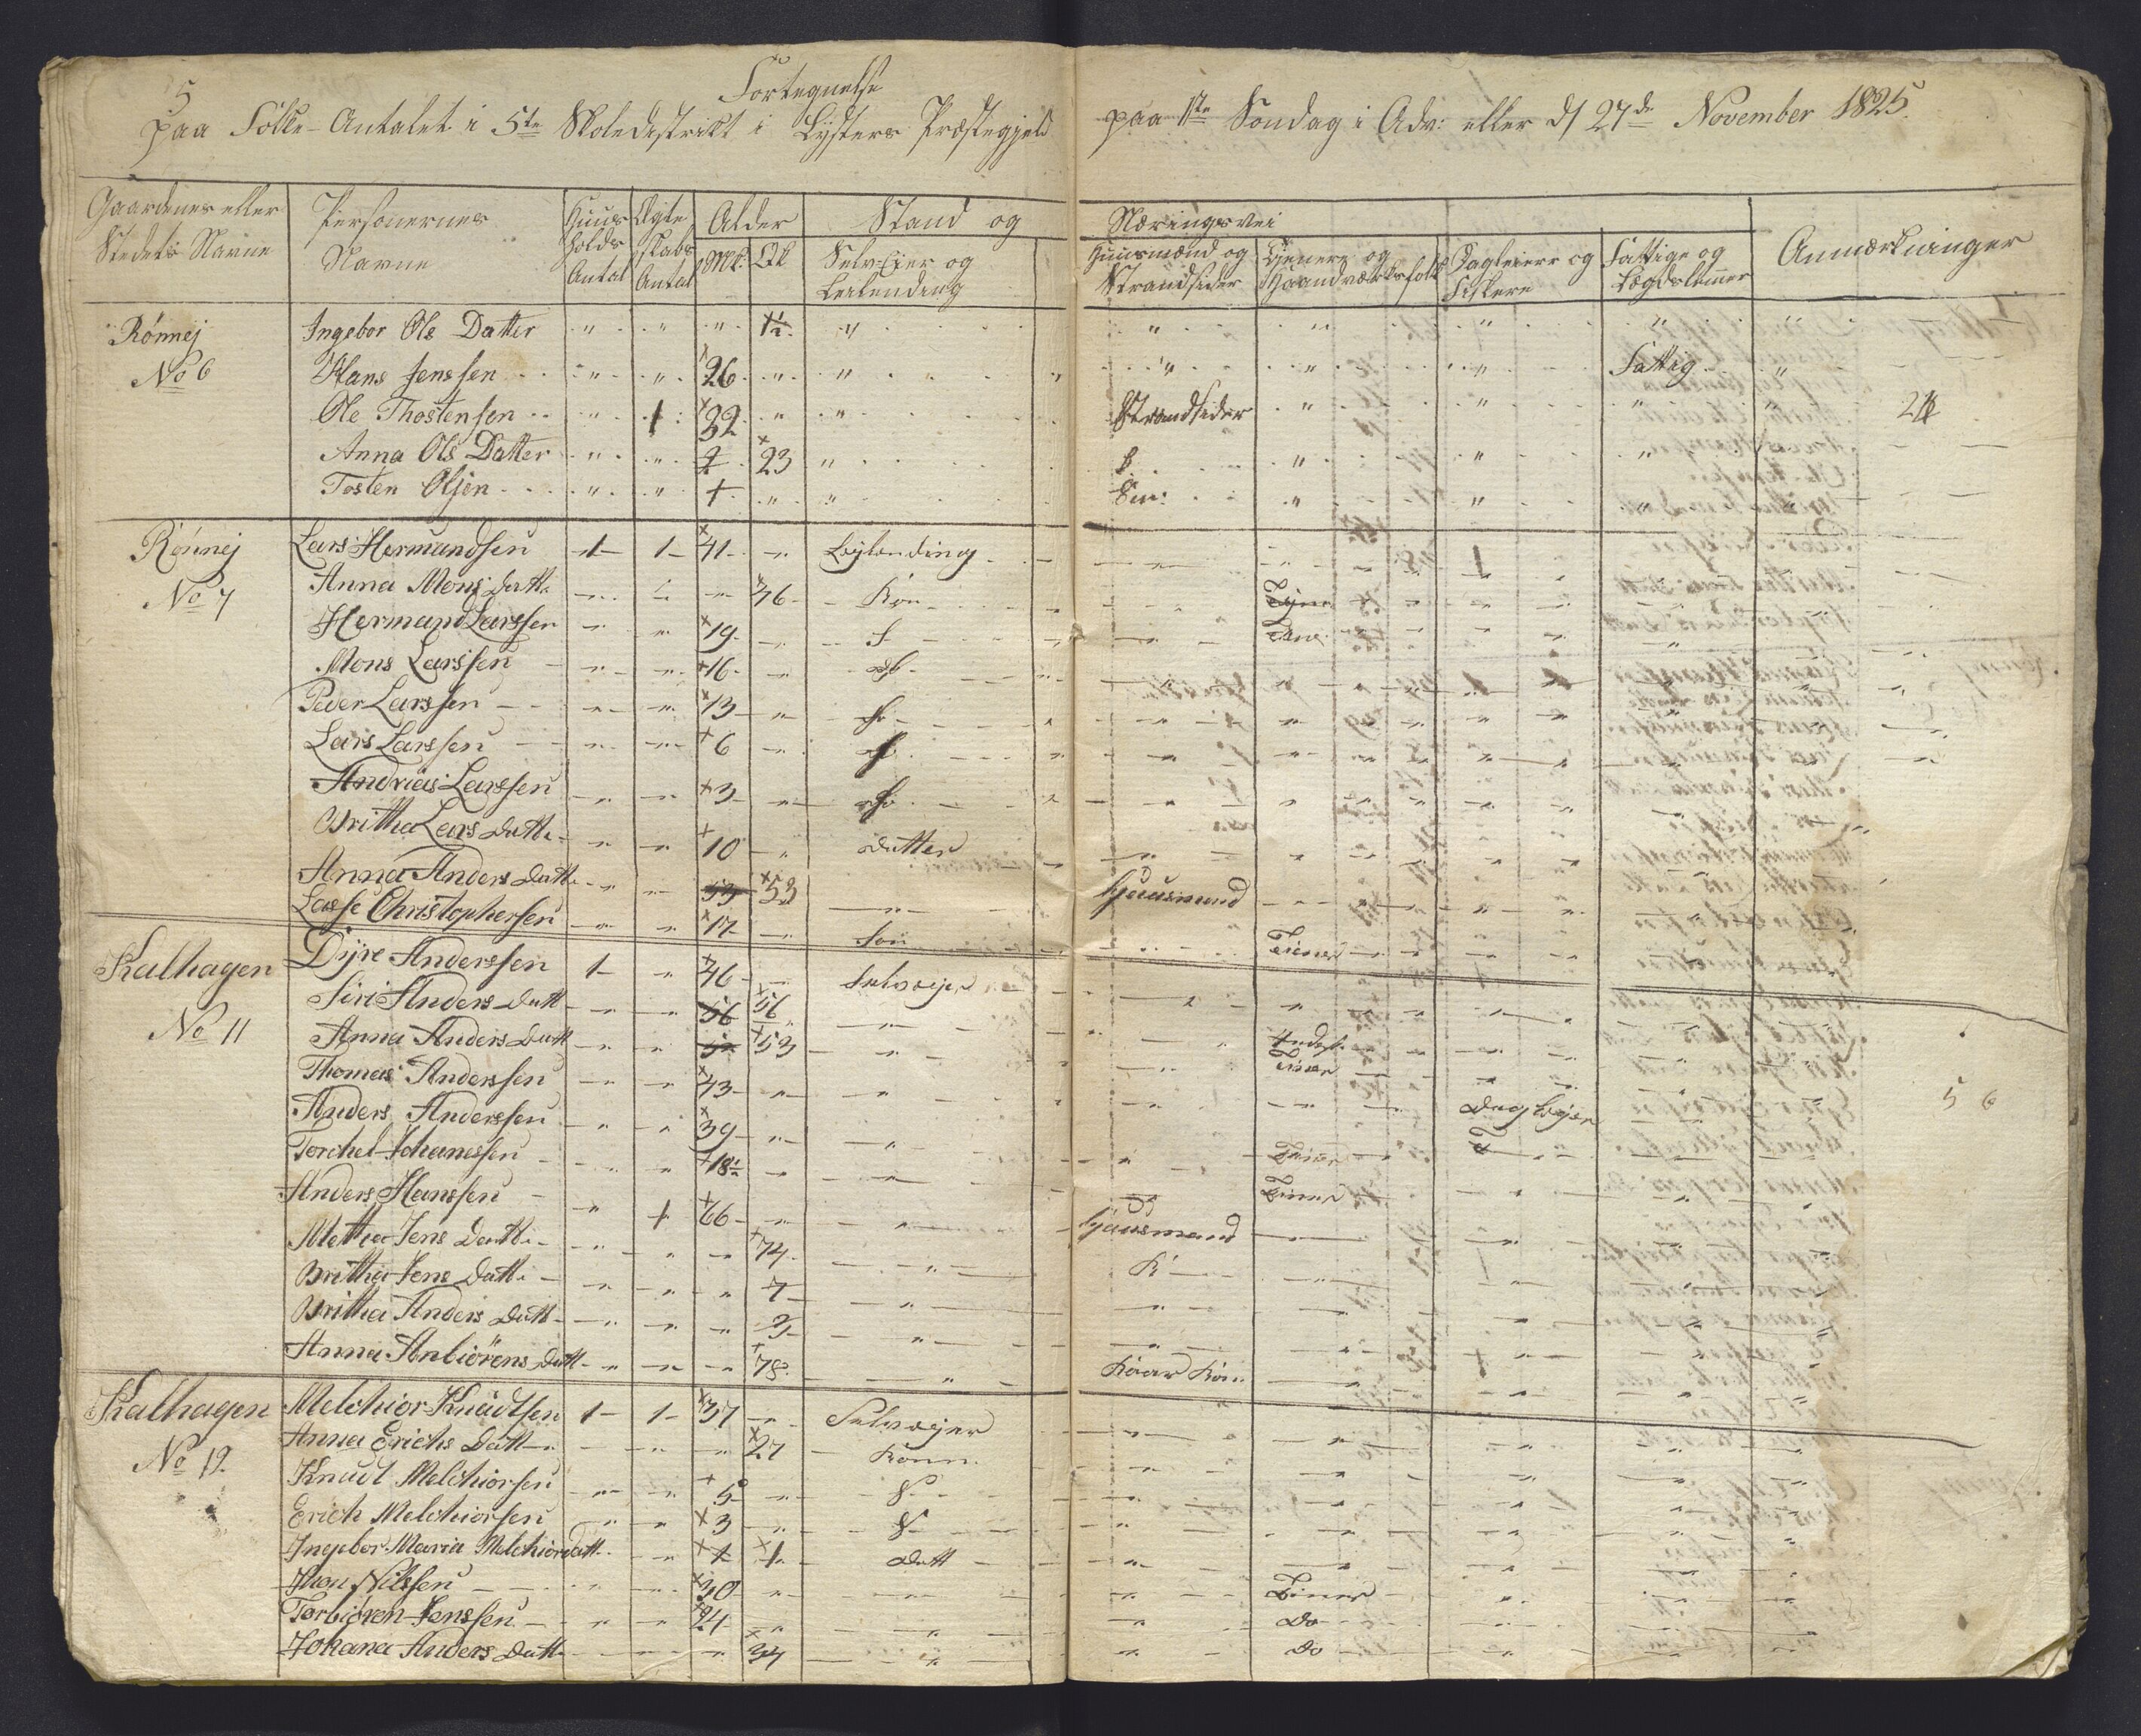 5
Fortegnelse
paa Folke-Antalet i 5te Skoledistrikt i Lysters Præstegjeld paa 1ste Søndag i Adv: eller d/ 27de November 1825.
Gaardenes eller Stedets Navne | Personernes Navne | Huusholds Antal | Ægteskabs Antal | Alder Mk: Qk | Stand og Næringsvei
Selv-Eier og Leilending | Huusmænd og Strandsider | Tienere og Haandværksfolk | Dagleiere og Fiskere | Fattige og Lægdslemer | Anmærkninger
Rønnej Ingebor Ole Datter " " " 1½ "
No 6 Hans Jenssen " " 26 " " Fattig
Ole Thostensen " 1 32 " " Strandsider 2
Anna Ols Datter " " 23 "
Tosten Olsen " " " "
Rønnej Lars Hermundsen 1 1 41 " Leylending 1
No 7 Anna Mons Datt. " 46 Kon
Hermund Larssen " " 19 " S
Mons Larssen " " 16 "
Peder Larssen " " 13 "
Lars Larssen " " 6 "
Andreas Larssen " " 3 "
Britha Lars Datt. " " 10 " Datter
Anna Anders Datt. " " 53 53 " Huusmand
Lasse Christophersen " " 17 " Søn Tiener
Kalhagen Dyre Anderssen 1 " 46 " Selvejer
No 11 Siri Anders Datt " " 56 56 "
Anna Anders Datt " " 53 " Tiener
Thomas Anderssen " " 43 " "
Anders Anderssen " " 39 " " Dagleyer
Torchel Johanessen " " 18½ " " Tiener
Anders Hanssen " 1 66 " " Tiener
Huusmand
Metha Jens Datt. " " " 74 " K
Britha Jens Datt. " " " 7 "
Britha Anders Datt " " " "
Anna Anbiörens Datt " " " 78 " Kaar Kon.
Kalhagen Melchior Knudtsen 1 1 37 " Selvejer
No 12. Anna Erichs Datt " " " 27 Konn.
Knudt Melchiorsen " " 5 " S
Erich Melchiorsen " " 3 " S
Ingebor Maria Melchiordatt. " " 1 Datt
Nilssen " " 30 " Tiener
Torbiören Jenssen " " 24 " " Do
Johana Anders Datt. " " 34 " Do
5 6